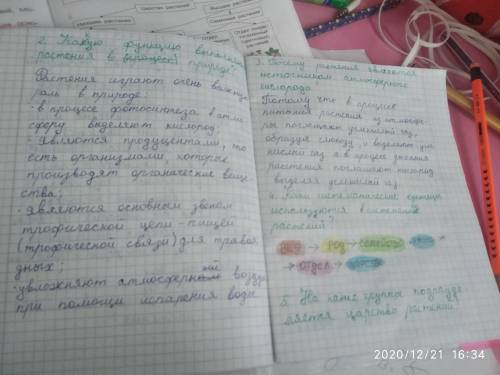 2. Какую функцию
растения в природе?
Растения играют очень важную
роль в природе:
· в процессе фотосинтеза в атмо
сферу выделяют кислород;
· Являются продуцентами, то
есть организмами, которые
производят органические веще
ства;
· являются основным звеном
трофической цепи пищей
(трофической связи) для травоя
дных;
· увлажняют атмосферный воздух
при помощи испарения воды
3. Почему растения являются
источником атмосферного
кислорода.
Потому что в процессе
питания растения из атмосфе
ры поглощают углекислый газ,
образуя глюкозу, и выделяют
кислород а в процессе дыхания
растения поглощают кислород
выделяя углекислый газ.
4. Какие систематические единицы
используются в систематике
растений?
вид → род → семейство →
→ отдел → царство
5. На какие группы подразде
ляется царство растений
2020/12/21 16:34